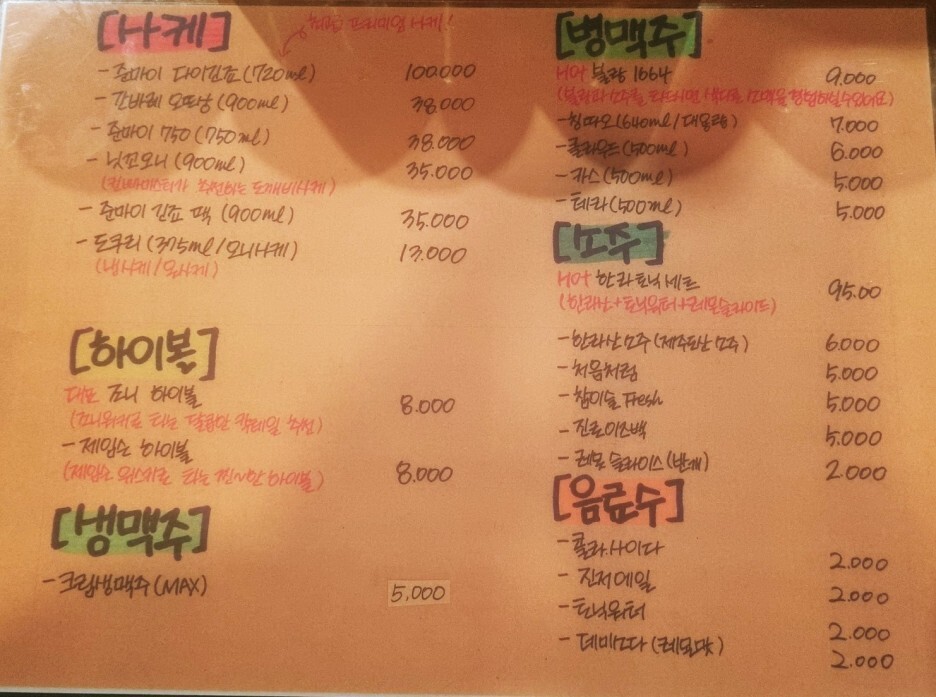 [사케]
최고급 프리미엄 사케!
- 준마이 다이긴죠 (720ml) 100.000
- 간바레 오또상 (900ml) 38.000
- 준마이 750 (750ml) 38.000
- 닛꼬오니 (900ml) 35.000
추천하는 도깨비사케)
- 준마이 긴죠 팩 (900ml) 35.000
- 도쿠리 (375ml/오니사케) 13.000
(냉사케/온사케)
[하이볼]
대표 죠니 하이볼 8.000
(죠니워커로 타는 달콤한 칵테일 추천)
- 제임슨 하이볼
(제임슨 위스키로 타는 찐~한 하이볼) 8.000
[생맥주]
- 크림생맥주 (MAX) 5,000
[병맥주]
HOT 블랑 1664 9.000
(블랑과 소주를 타드시면 색다른 소맥을 경험하실수있어요)
- 칭따오 (640ml/대용량) 7.000
- 클라우드 (500ml) 6.000
- 카스 (500ml) 5.000
- 테라 (500ml) 5.000
[소주]
HOT 한라토닉세트 95.00
(한라산+토닉워터+레몬슬라이드)
- 한라산소주 (제주도산 소주) 6.000
- 처음처럼 5.000
- 참이슬 Fresh 5.000
- 진로이즈백 5.000
- 레몬 슬라이스 (반개) 2.000
[음료수]
- 콜라.사이다 2.000
- 진저에일 2.000
- 토닉워터 2.000
- 데미소다 (레몬맛) 2.000